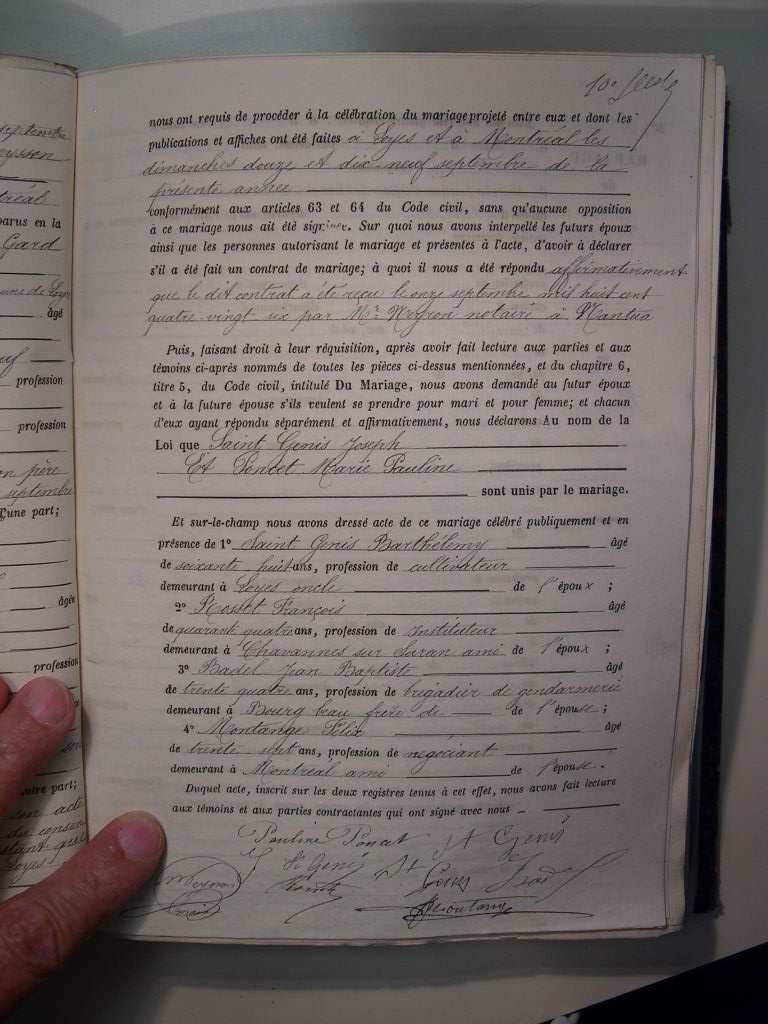 septembre
Neyson
tréal
parus en la
Gard
âgé
uf
profession
profession
on père
septembre
une part;
âgée
profession
autre part;
son acte
10e
nous ont requis de procéder à la célébration du mariage projeté entre eux et dont les
publications et affiches ont été faites à Loyes et à Montréal les
dimanches douze et dix-neuf septembre de la
présente année
conformément aux articles 63 et 64 du Code civil, sans qu'aucune opposition
à ce mariage nous ait été signifiée. Sur quoi nous avons interpellé les futurs époux
ainsi que les personnes autorisant le mariage et présentes à l'acte, d'avoir à déclarer
s'il a été fait un contrat de mariage; à quoi il nous a été répondu affirmativement
que le dit contrat a été reçu le onze septembre mil huit cent
quatre-vingt six par Me Neyron notaire à Nantua
Puis, faisant droit à leur réquisition, après avoir fait lecture aux parties et aux
témoins ci-après nommés de toutes les pièces ci-dessus mentionnées, et du chapitre 6,
titre 5, du Code civil, intitulé Du Mariage, nous avons demandé au futur époux
et à la future épouse s'ils veulent se prendre pour mari et pour femme; et chacun
d'eux ayant répondu séparément et affirmativement, nous déclarons Au nom de la
Loi que Saint Genis Joseph
Et Poncet Marie Pauline
sont unis par le mariage.
Et sur-le-champ nous avons dressé acte de ce mariage célébré publiquement et en
présence de 1° Saint Genis Barthélemy âgé
de soixante huit ans, profession de cultivateur
demeurant à Loyes oncle de l'époux ;
2° Rosset François âgé
de quarante quatre ans, profession de Instituteur
demeurant à Chavannes sur Suran ami de l'époux ;
3° Badel Jean Baptiste âgé
de trente quatre ans, profession de brigadier de gendarmerie
demeurant à Bourg beau frère de de l'épouse ;
4° Montange Félix âgé
de trente sept ans, profession de négociant
demeurant à Montréal ami de l'épouse.
Duquel acte, inscrit sur les deux registres tenus à cet effet, nous avons fait lecture
aux témoins et aux parties contractantes qui ont signé avec nous
Pauline Poncet St Genis
St Genis St
Montange